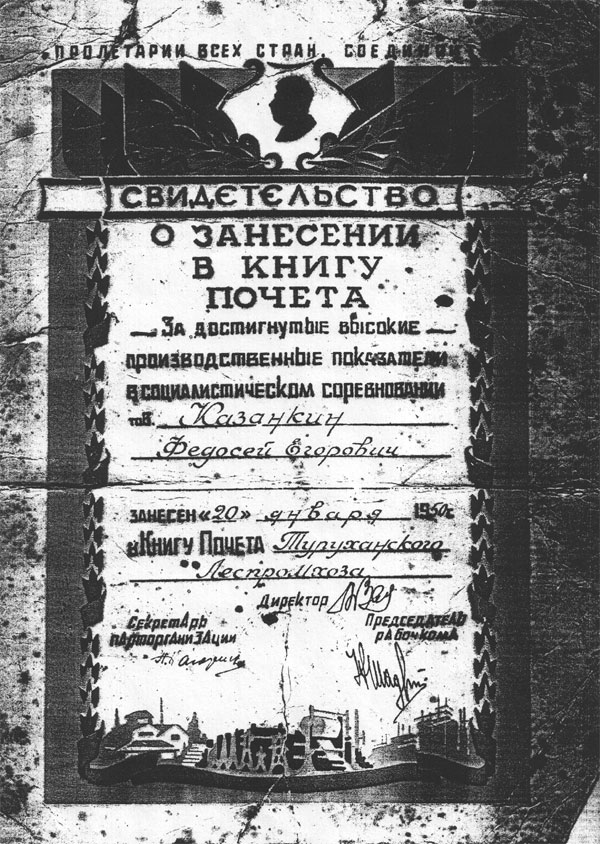 ПРОЛЕТАРИИ ВСЕХ СТРАН, СОЕДИНЯЙ
СВИДЕТЕЛЬСТВО
О ЗАНЕСЕНИИ
В КНИГУ
ПОЧЕТА
За достигнутые высокие
производственные показатели
в социалистическом соревновании
тов. Казанкин
Федосей Егорович
занесен «20» января 1950г.
в Книгу Почета Туруханского
Леспромхоза
Директор
Секретарь
парторганизации
Председатель
рабочкома